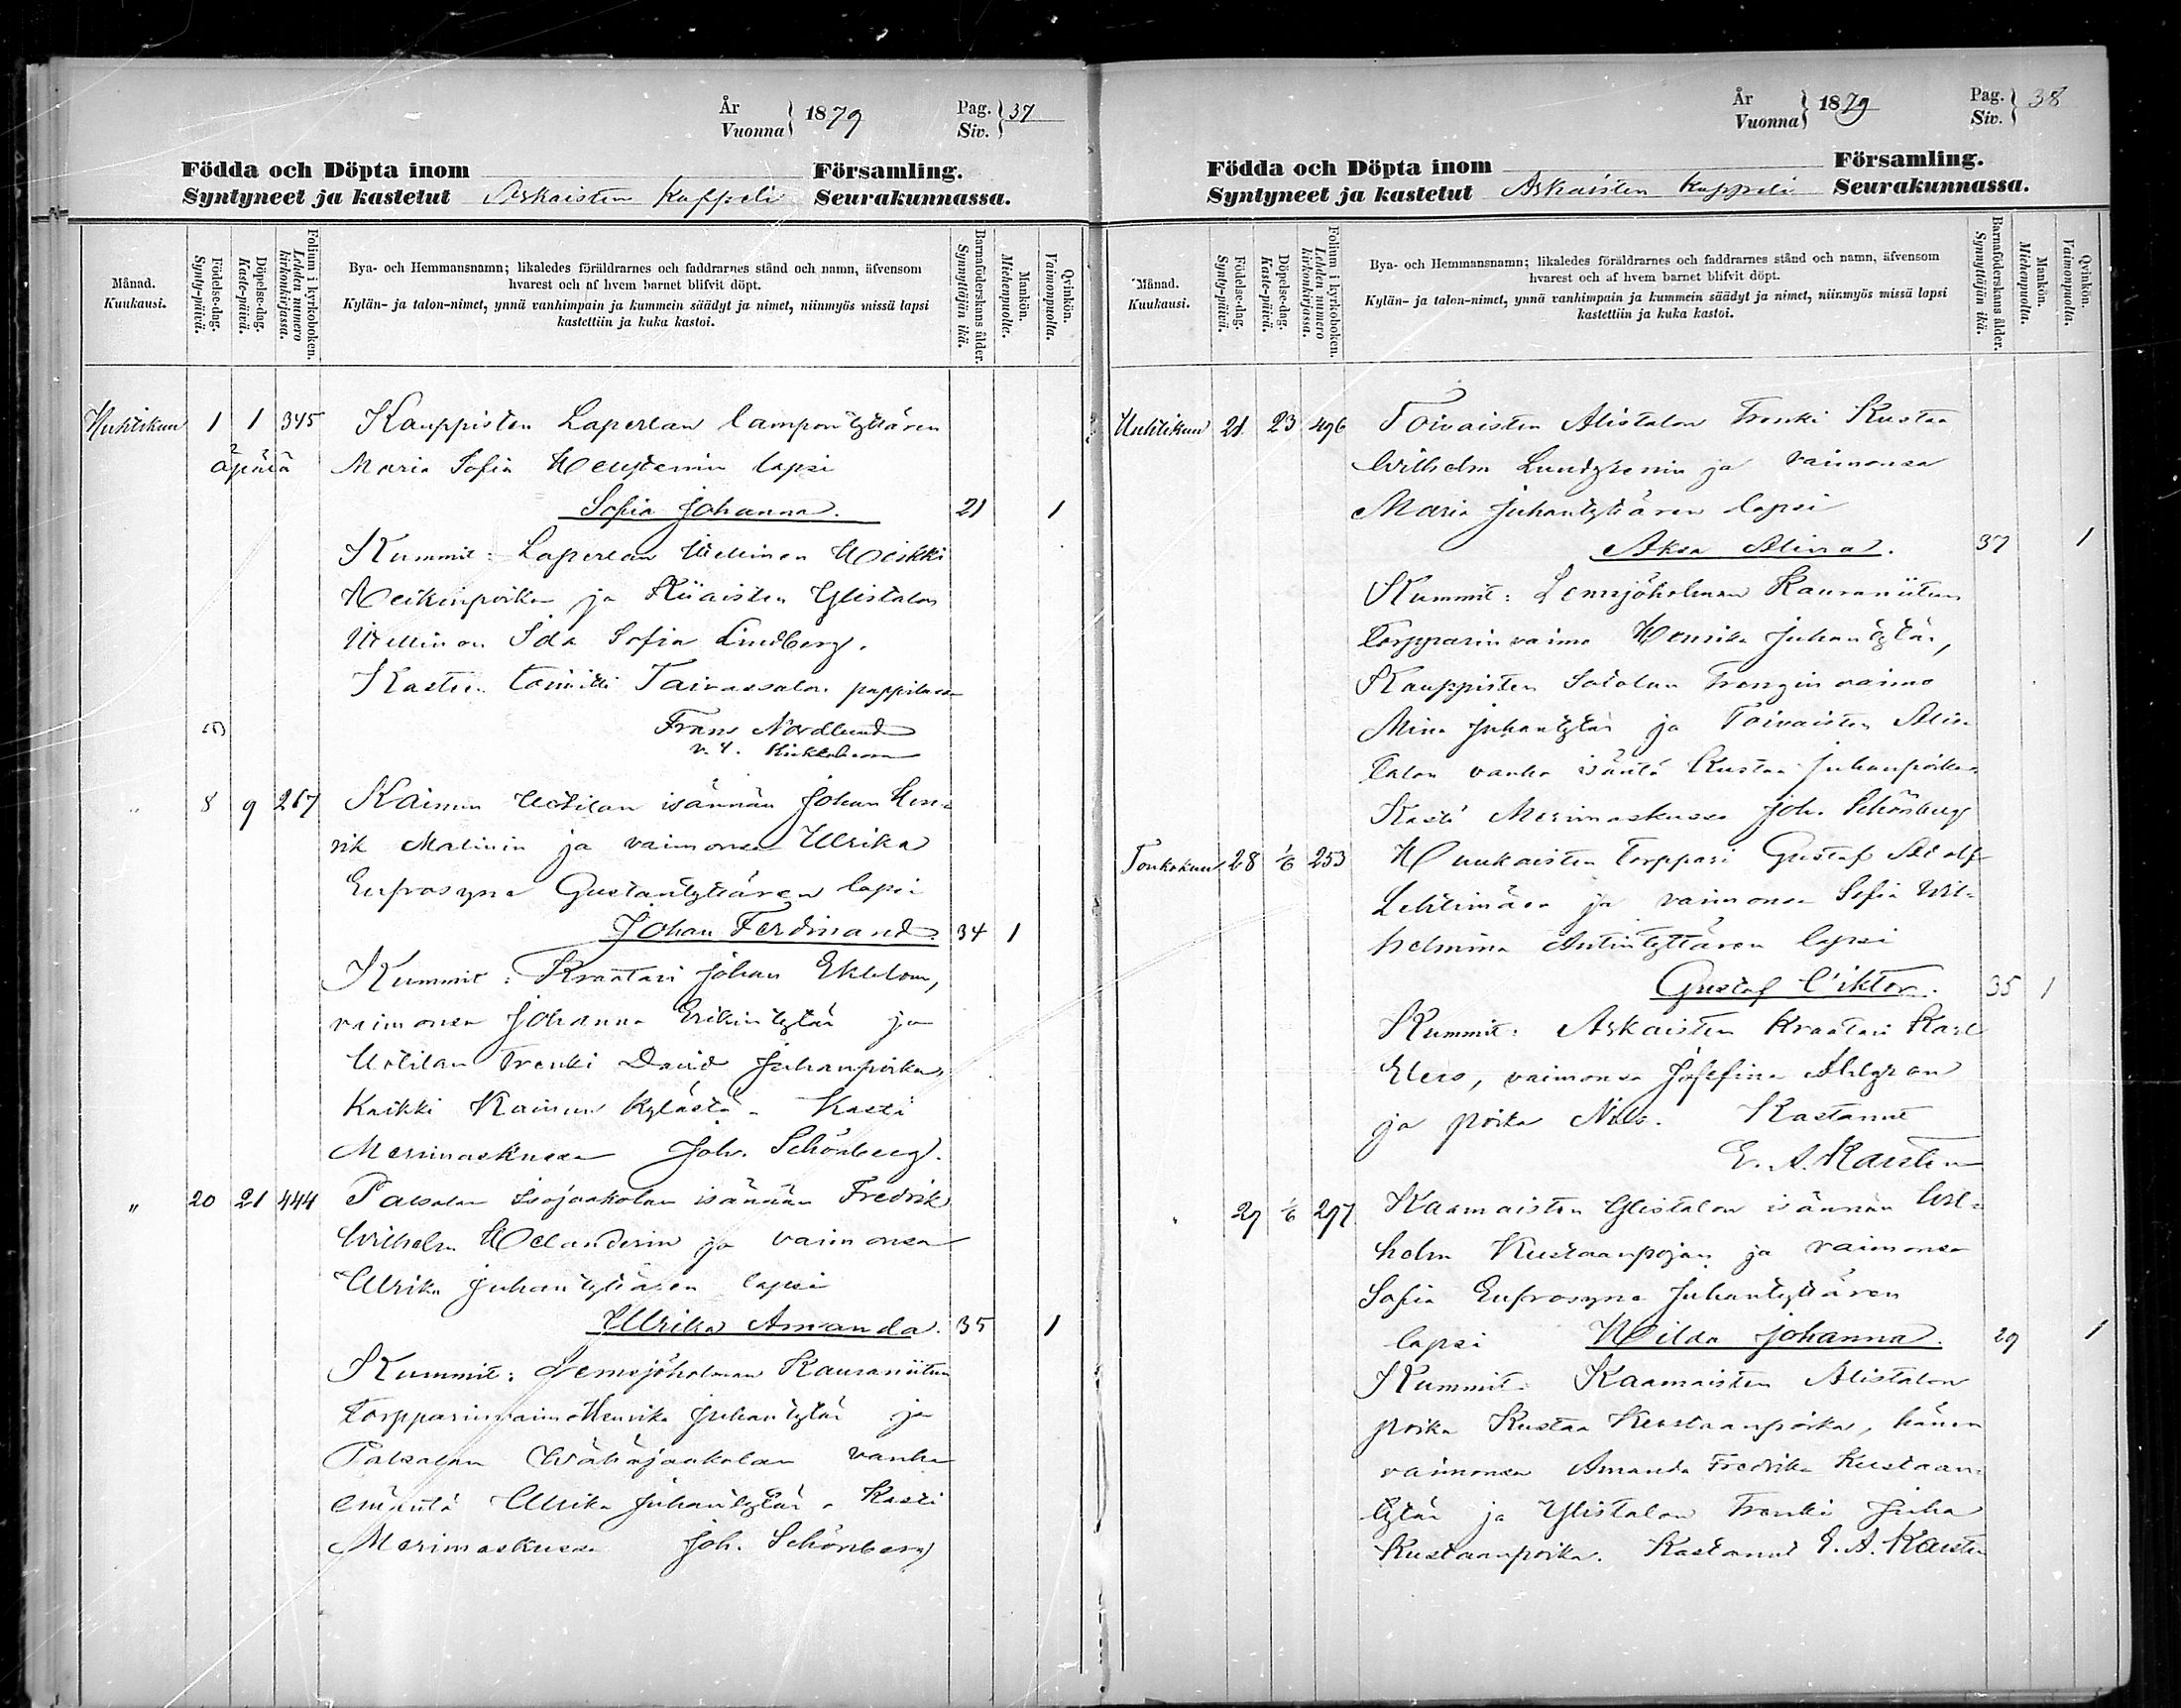 År
Vuonna
1879
Pag.
Siv.
37
Födda och Döpta inom Församling.
Syntyneet ja kastetut Askaisten kappeli Seurakunnassa.
Månad.
Kuukausi.
Födelse-dag.
Synty-päivä.
Döpelse-dag.
Kaste-päivä.
Folium i kyrkoboken.
Lehden numero
kirkonkirjassa.
Bya- och Hemmansnamn; likaledes föräldrarnes och faddrarnes stånd och namn, äfvensom
hvarest och af hvem barnet blifvit döpt.
Kylän- ja talon-nimet, ynnä vanhimpain ja kummein säädyt ja nimet, niinmyös missä lapsi
kastettiin ja kuka kastoi.
Barnaföderskans ålder.
Synnyttäjän ikä.
Mankön.
Miehenpuolta.
Qvinkön.
Vaimonpuolta.
Huhtikuu 1 1 345 Kauppisten Laperlan lamponlyttären
äpärä Maria Sofia lapsi
Sofia Johanna. 21 1
Kummit: Laperlan itellinen Heikki
Heikinpoika ja Riiaisten Ylistalon
itellinen Ida Sofia Lindberg.
Kasteen toimitti Taivassalon pappilassa
Frans Nordlund
v. t. Kirkkoherra
" 8 9 267 Kaimun Uotilan isännän Johan Hen=
rik Malinin ja vaimonsa Ulrika
Eufrosyna Gustantyttären lapsi
Johan Ferdinand. 34 1
Kummit: Kraatari Johan Ekblom,
vaimonsa Johanna Erikintytär ja
Uotilan trenki David Juhanpoika,
kaikki Kaimun kylästä. Kasti
Merimaskussa Joh. Schönberg.
" 20 21 444 Pakalan Isojaakolan isännän Fredrik
Wilhelm Helanderin ja vaimonsa
Ulrika Juhantyttären lapsi
Ulrika Amanda. 35 1
Kummit: Lemsjöholman Kauraniitun
torpparinvaimo Henrika Juhantytär ja
Pakalan Wähäjaakolan vanha
emäntä Ulrika Juhantytär. Kasti
Merimaskussa Joh. Schönberg
År
Vuonna
1879
Pag.
Siv.
38
Födda och Döpta inom Församling.
Syntyneet ja kastetut Askaisten kappeli Seurakunnassa.
Månad.
Kuukausi.
Födelse-dag.
Synty-päivä.
Döpelse-dag.
Kaste-päivä.
Folium i kyrkoboken.
Lehden numero
kirkonkirjassa.
Bya- och Hemmansnamn; likaledes föräldrarnes och faddrarnes stånd och namn, äfvensom
hvarest och af hvem barnet blifvit döpt.
Kylän- ja talon-nimet, ynnä vanhimpain ja kummein säädyt ja nimet, niinmyös missä lapsi
kastettiin ja kuka kastoi.
Barnaföderskans ålder.
Synnyttäjän ikä.
Mankön.
Miehenpuolta.
Qvinkön.
Vaimonpuolta.
Huhtikuu 21 23 496 Toivaisten Alistalon trenki Kustaa
Wilhelm Lundgrenin ja vaimonsa
Maria Juhantyttären lapsi
Aksa Alina. 37 1
Kummit: Lemsjöholman Kauraniitun
torpparinvaimo Henrika Juhantytär,
Kauppisten Satolan trengin vaimo
Mina Juhantytär ja Toivaisten Alis=
talon vanha isäntä Kustaa Juhanpoika.
Kasti Merimaskussa Joh. Schönberg
Toukokuu 28 1/6 253 Huukaisten torppari Gustaf Adolf
Lehtimäen ja vaimonsa Sofia Wil=
helmina Antintyttären lapsi
Gustaf Viktor. 35 1
Kummit: Askaisten kraatari Karl
Elers, vaimonsa Josefina Ahlgren
ja poika Nils. Kastanut
E. A. Karsten
" 29 1/6 297 Kaamaisten Ylistalon isännän Wil=
helm Kustaanpojan ja vaimonsa
Sofia Eufrosyna Juhantyttären
lapsi Hilda Johanna. 29 1
Kummit: Kaamaisten Alistalon
poika Kustaa Kustaanpoika, hänen
vaimonsa Amanda Fredrika Kustaan=
tytär ja Ylistalon trenki Juha
Kustaanpoika. Kastanut E. A. Karsten